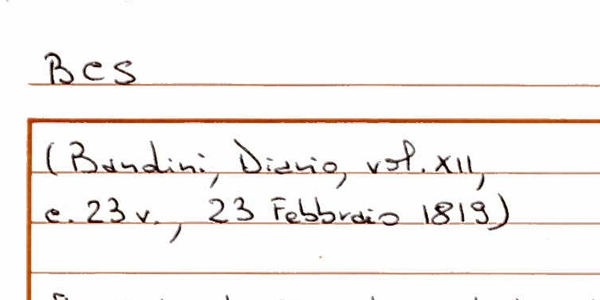 BCS
(Bandini, Diario, vol. XII,
c. 23 v., 23 Febbraio 1819)